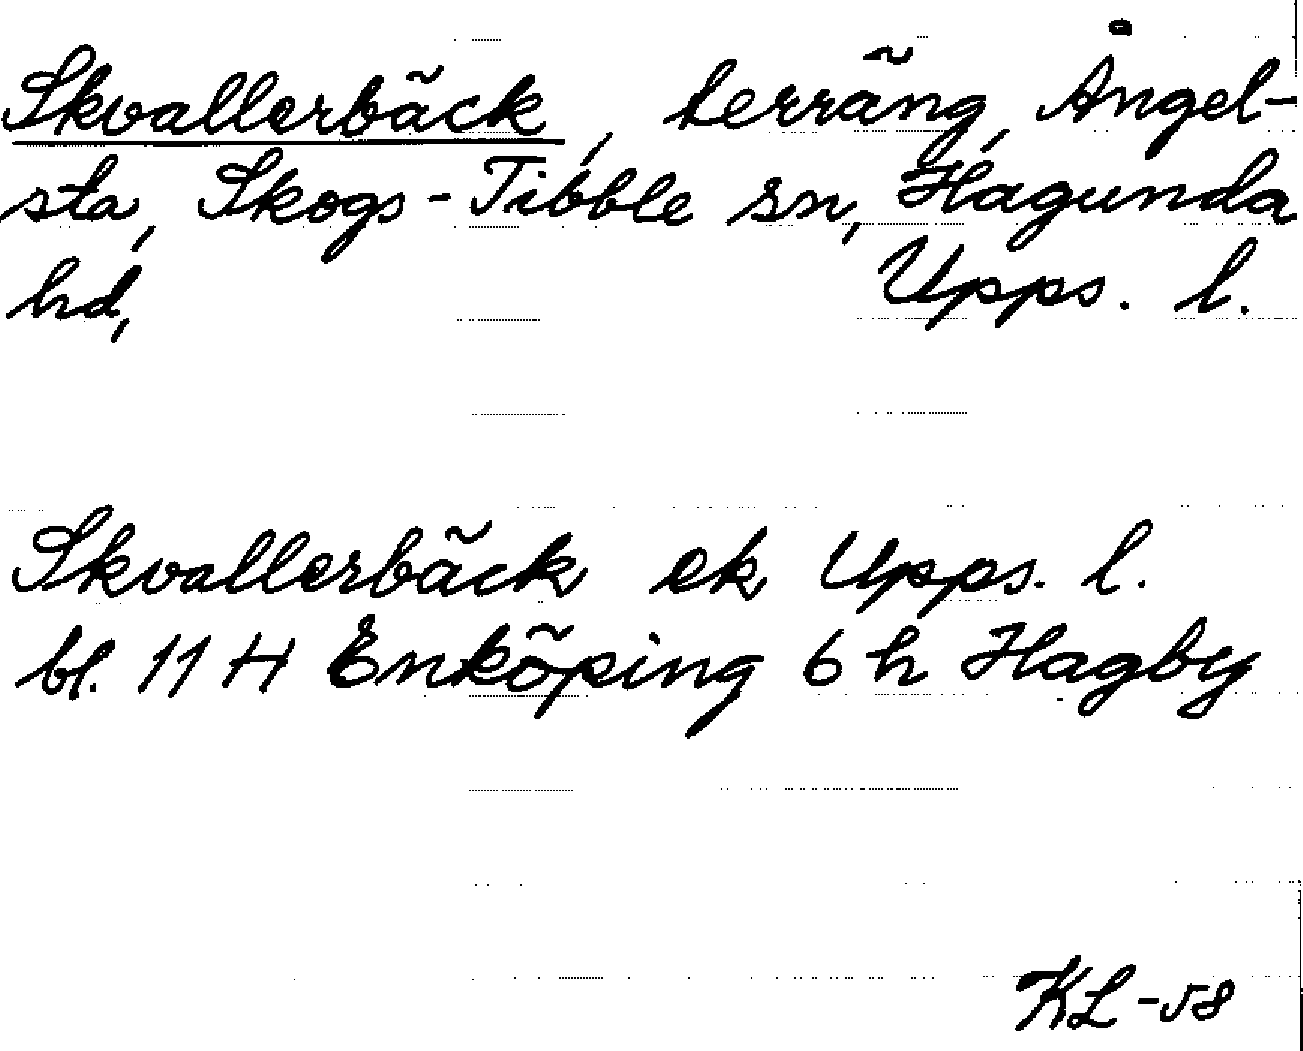 Skvallerbäck, terräng, Ångel-
sta, Skogs-Tibble sn, Hagunda
hd, Upps. l.
Skvallerbäck ek Upps. l.
bl. 11 H Enköping 6 h Hagby
KL-58